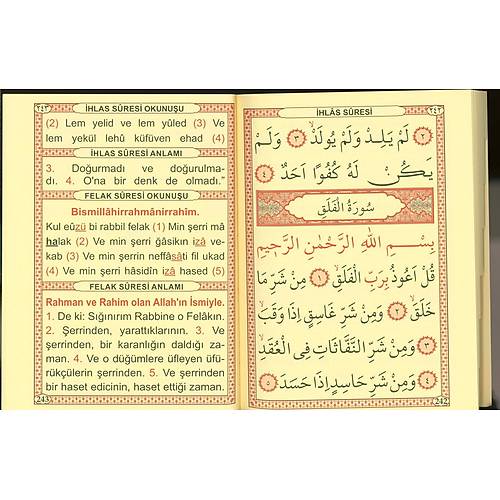 ٢٤٣
İHLAS SÛRESİ OKUNUŞU
(2) Lem yelid ve lem yûled (3) Ve
lem yekül lehû küfüven ehad (4)
İHLAS SÛRESİ ANLAMI
3. Doğurmadı ve doğurulma-
dı. 4. O'na bir denk de olmadı."
FELAK SÛRESİ OKUNUŞU
Bismillâhirrahmânirrahîm.
Kul eûzü bi rabbil felak (1) Min şerri mâ
halak (2) Ve min şerri ğâsikın izâ ve-
kab (3) Ve min şerrin neffâsâti fil ukad
(4) Ve min şerri hâsidin izâ hased (5)
FELAK SÛRESİ ANLAMI
Rahman ve Rahim olan Allah'ın İsmiyle.
1. De ki: Sığınırım Rabbine o Felâkın.
2. Şerrinden, yarattıklarının. 3. Ve
şerrinden, bir karanlığın daldığı za-
man. 4. Ve o düğümlere üfleyen üfü-
rükçülerin şerrinden. 5. Ve şerrinden
bir haset edicinin, haset ettiği zaman.
243
٢٤٢
İHLÂS SÛRESİ
٢ لَمْ يَلِدْ وَلَمْ يُولَدْ ٣ وَلَمْ
يَكُنْ لَهُ كُفُوًا اَحَدٌ ٤
سُورَةُ الْفَلَقِ
بِسْمِ اللّٰهِ الرَّحْمٰنِ الرَّحِيمِ
قُلْ اَعُوذُ بِرَبِّ الْفَلَقِ ١ مِنْ شَرِّ مَا
خَلَقَ ٢ وَمِنْ شَرِّ غَاسِقٍ اِذَا وَقَبَ
٣ وَمِنْ شَرِّ النَّفَّاثَاتِ فِى الْعُقَدِ
٤ وَمِنْ شَرِّ حَاسِدٍ اِذَا حَسَدَ ٥
242